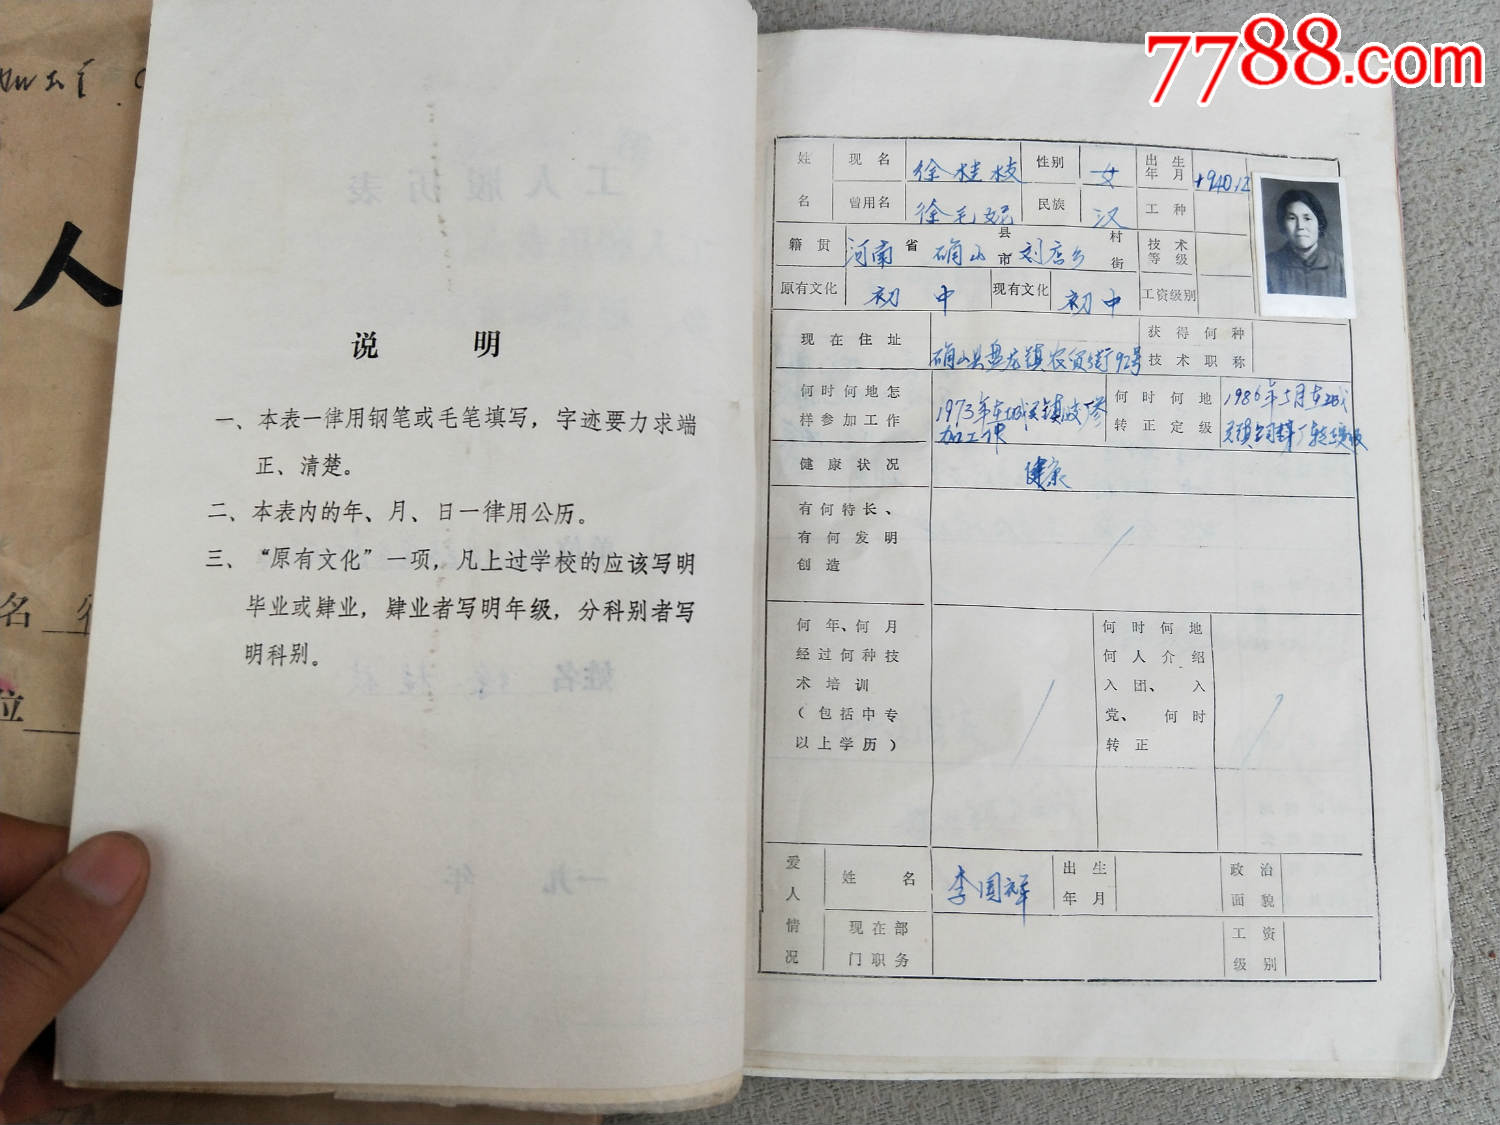 7788.com
人
名
位
说 明
一、本表一律用钢笔或毛笔填写，字迹要力求端
正、清楚。
二、本表内的年、月、日一律用公历。
三、“原有文化”一项，凡上过学校的应该写明
毕业或肄业，肄业者写明年级，分科别者写
明科别。
姓名 现名 徐桂枝 性别 女 出生年月 1940.12
曾用名 徐毛妮 民族 汉 工种
籍贯 河南省 确山县市 刘店乡村街 技术等级
原有文化 初中 现有文化 初中 工资级别
现在住址 确山县盘龙镇农贸街92号 获得何种技术职称
何时何地怎样参加工作 1973年 参加工作 何时何地转正定级 1986年5月
健康状况 健康
有何特长、
有何发明
创造
何年、何月
经过何种技
术培训
（包括中专
以上学历）
何时何地
何人介绍
入团、入
党、何时
转正
爱人情况 姓名 李国祥 出生年月 政治面貌
现在部门职务 工资级别